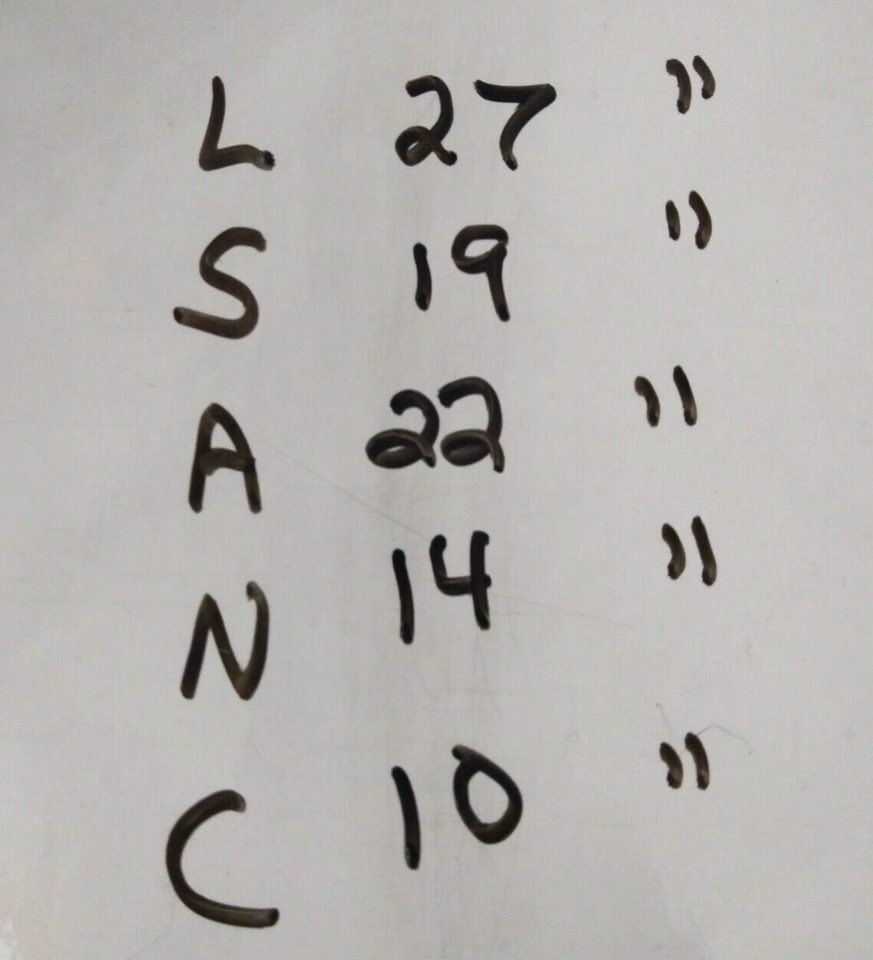 L 27 "
S 19 "
A 22 "
N 14 "
C 10 "